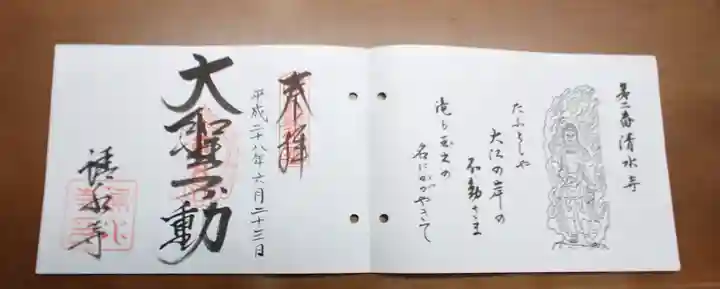 第二番清水寺
たふとしや
大江の岸の
不動さま
滝も玉出の
名にかがやきて
奉拝
平成二十八年六月二十三日
大聖不動
清水寺